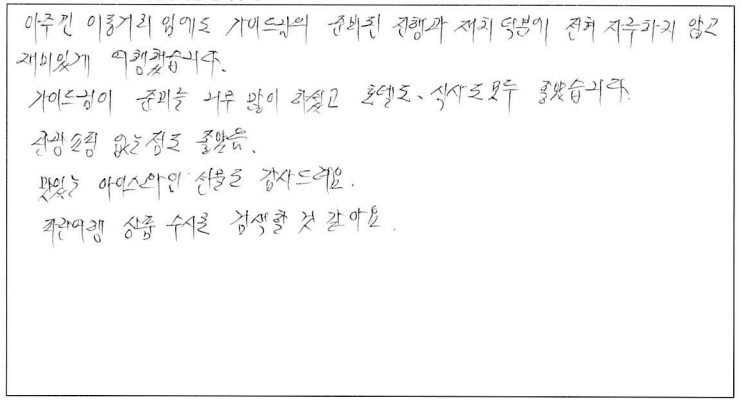 아주 긴 이동거리 임에도 가이드님의 준비된 진행과 재치 덕분에 전혀 지루하지 않고
재미있게 여행했습니다.
가이드님이 준비를 너무 많이 하셨고 호텔도, 식사도 모두 좋았습니다.
관광 쇼핑 없는 점도 좋았음.
맛있는 아이스와인 선물도 감사드려요.
참좋은여행 상품 수시로 검색할 것 같아요.